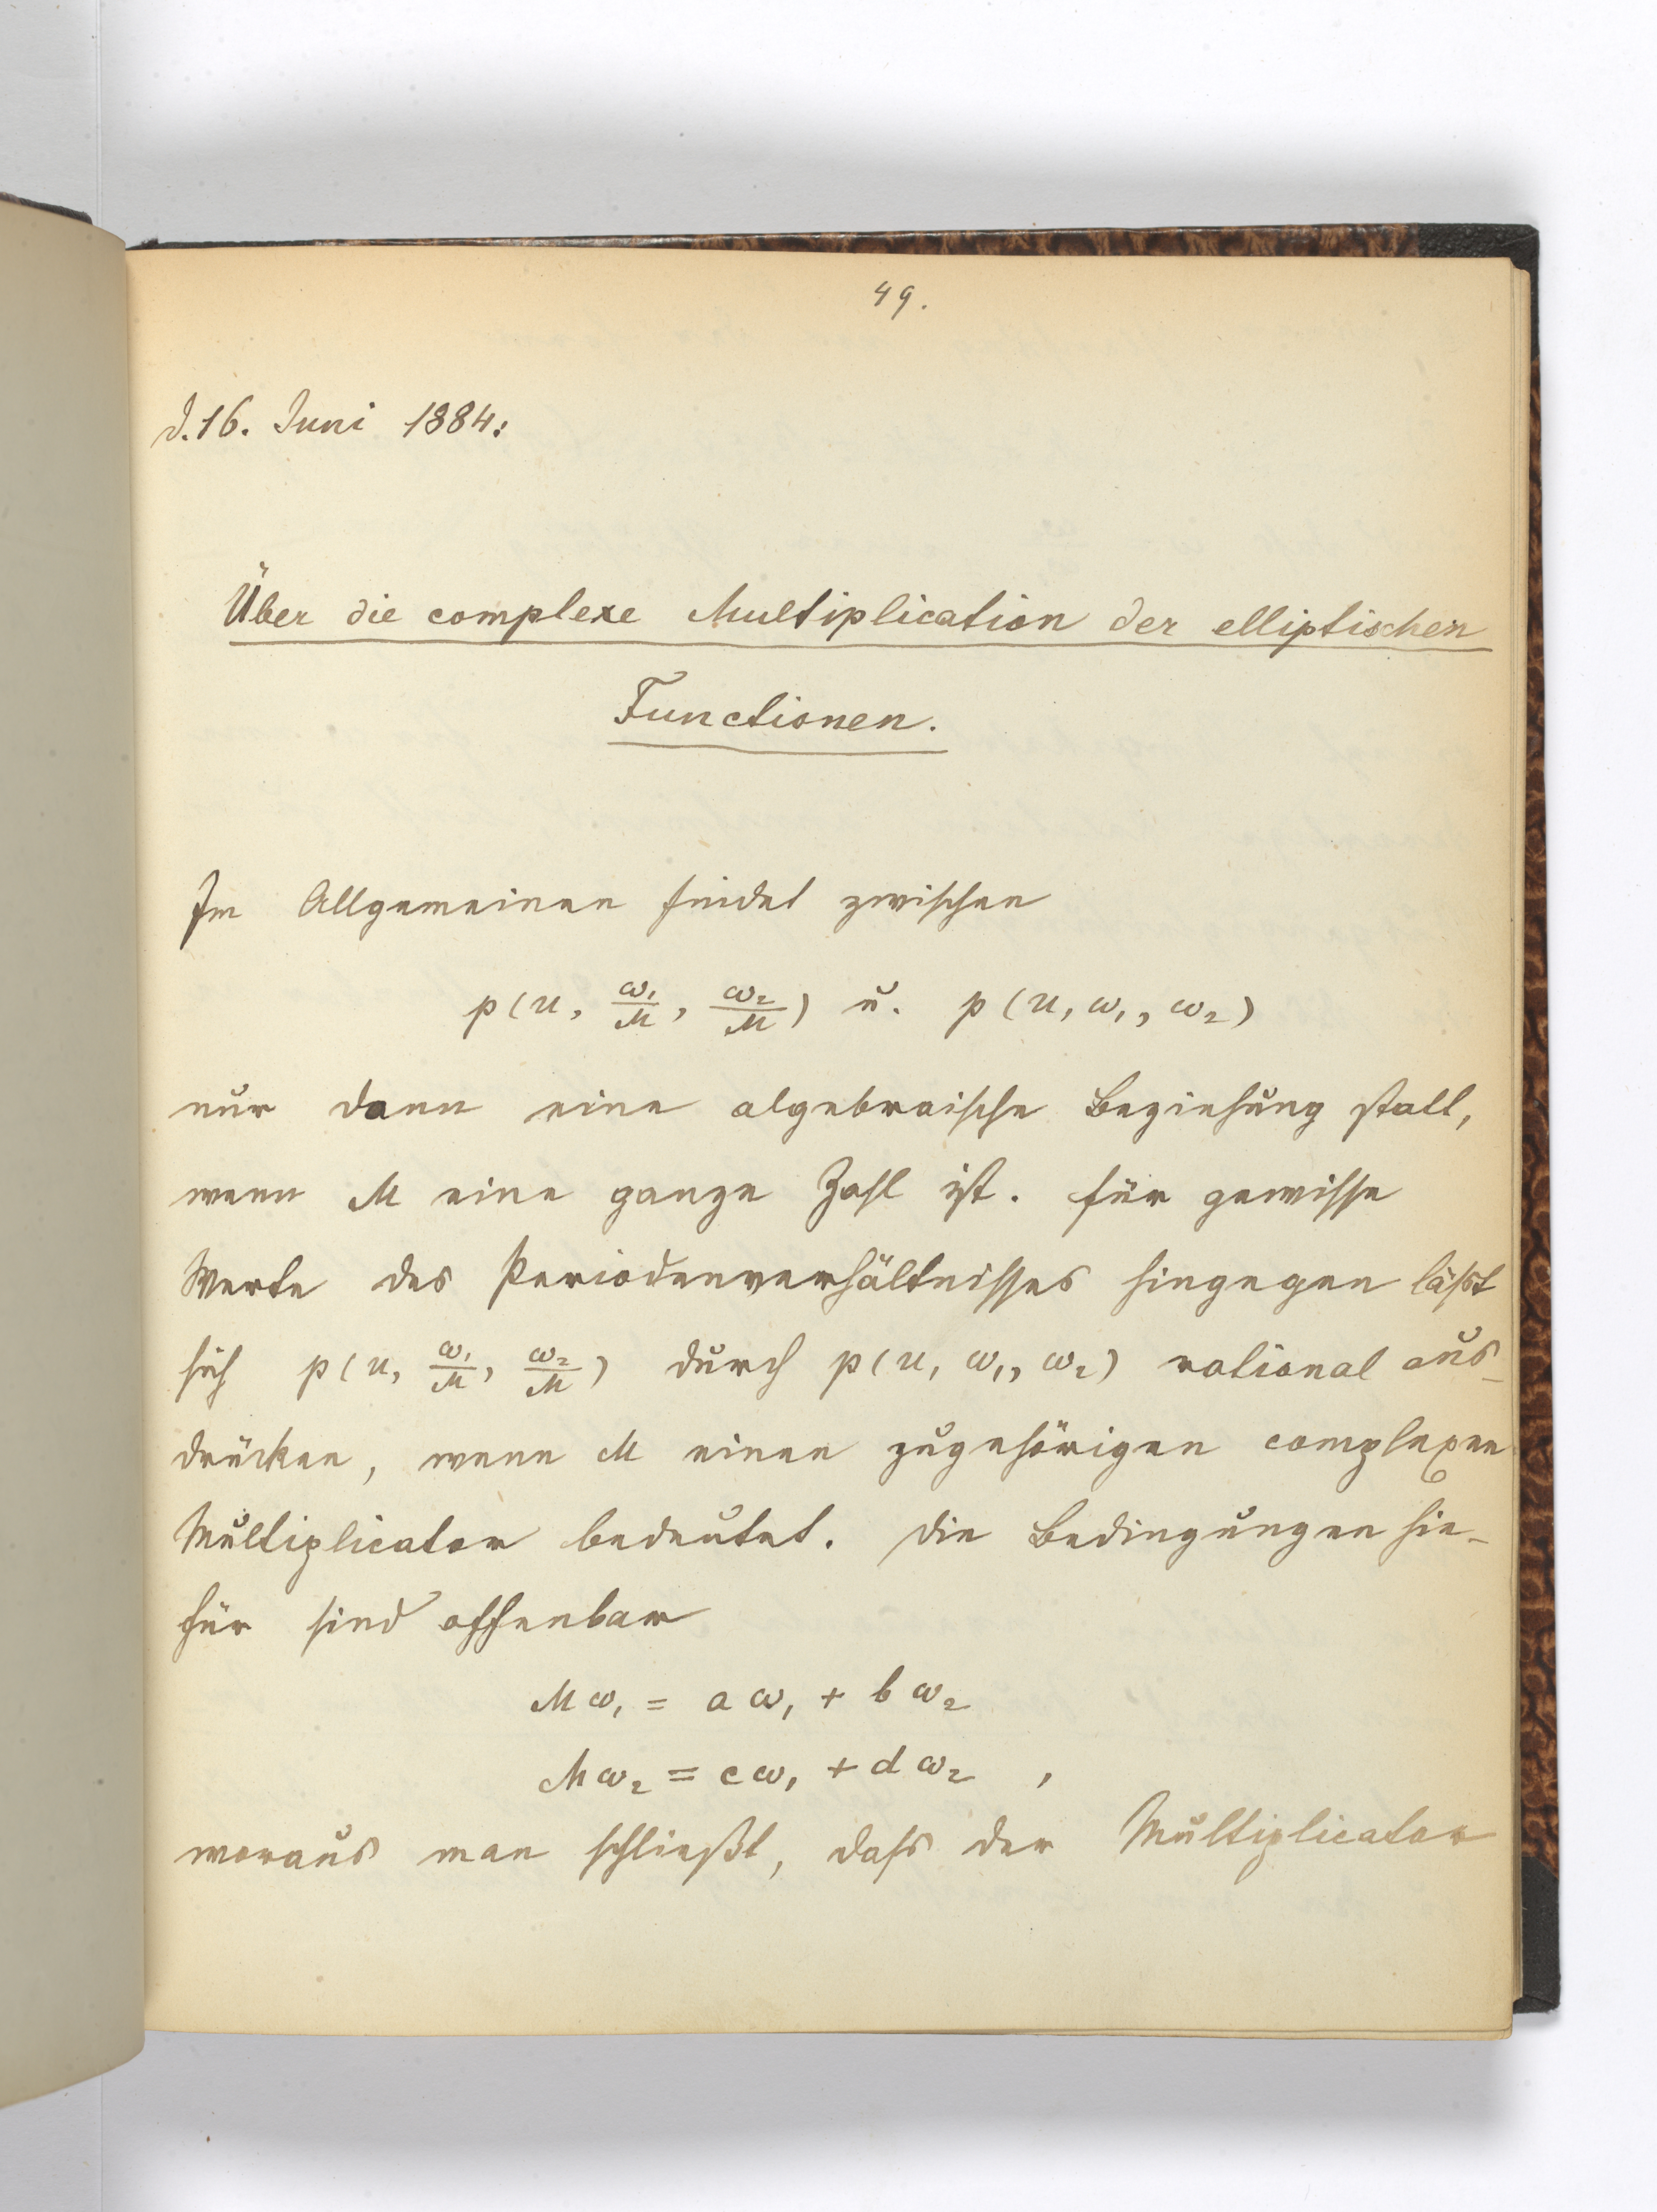 49.
d. 16. Juni 1884:
Über die complexe Multiplication der elliptischen
Functionen.
Im Allgemeinen findet zwischen
p(u, ω₁/M, ω₂/M) u. p(u, ω₁, ω₂)
nur dann eine algebraische Beziehung statt,
wenn M eine ganze Zahl ist. Für gewisse
Werte des Periodenverhältnisses hingegen läßt
sich p(u, ω₁/M, ω₂/M) durch p(u, ω₁, ω₂) rational aus-
drücken, wenn M einen zugehörigen complexen
Multiplicator bedeutet. Die Bedingungen hie-
für sind offenbar
Mω₁ = aω₁ + bω₂
Mω₂ = cω₁ + dω₂ ,
woraus man schließt, dass der Multiplicator